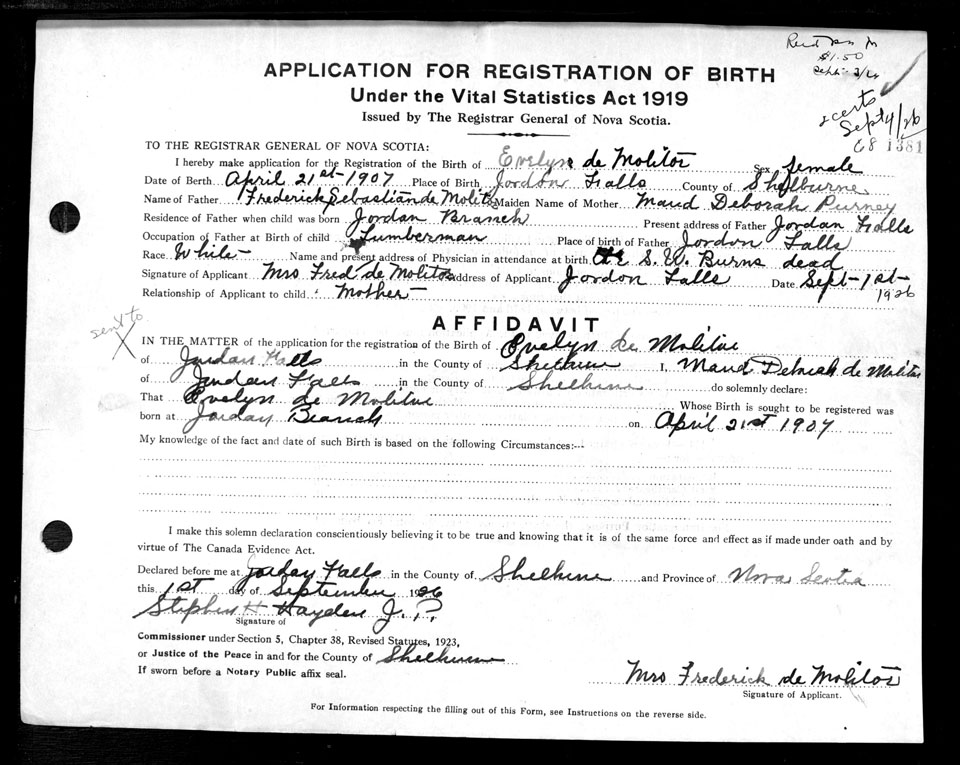 $1.50
Sept 2/26
2 certs
Sept 4/26
68 1381
APPLICATION FOR REGISTRATION OF BIRTH
Under the Vital Statistics Act 1919
Issued by The Registrar General of Nova Scotia.
TO THE REGISTRAR GENERAL OF NOVA SCOTIA:
I hereby make application for the Registration of the Birth of Evelyn de Molitor Sex female
Date of Berth April 21st - 1907 Place of Birth Jordon Falls County of Shelburne
Name of Father Frederick Sebastian de Molitor Maiden Name of Mother Maud Deborah Purney
Residence of Father when child was born Jordan Branch Present address of Father Jordan Falls
Occupation of Father at Birth of child Lumberman Place of birth of Father Jordon Falls
Race. White Name and present address of Physician in attendance at birth S. W. Burns dead
Signature of Applicant Mrs Fred de Molitor Address of Applicant Jordon Falls Date Sept - 1st - 1926
Relationship of Applicant to child Mother
sent to
X
AFFIDAVIT
IN THE MATTER of the application for the registration of the Birth of Evelyn de Molitor
of Jordan Falls in the County of Shelburne I, Maud Deborah de Molitor
of Jordan Falls in the County of Shelburne do solemnly declare:
That Evelyn de Molitor Whose Birth is sought to be registered was
born at Jordan Branch on April 21st 1907
My knowledge of the fact and date of such Birth is based on the following Circumstances:--
I make this solemn declaration conscientiously believing it to be true and knowing that it is of the same force and effect as if made under oath and by
virtue of The Canada Evidence Act.
Declared before me at Jordan Falls in the County of Shelburne and Province of Nova Scotia
this 1st day of September 1926
Stephen H Hayden J. P.
Signature of
Commissioner under Section 5, Chapter 38, Revised Statutes, 1923,
or Justice of the Peace in and for the County of Shelburne
If sworn before a Notary Public affix seal.
Mrs Frederick de Molitor
Signature of Applicant.
For Information respecting the filling out of this Form, see Instructions on the reverse side.